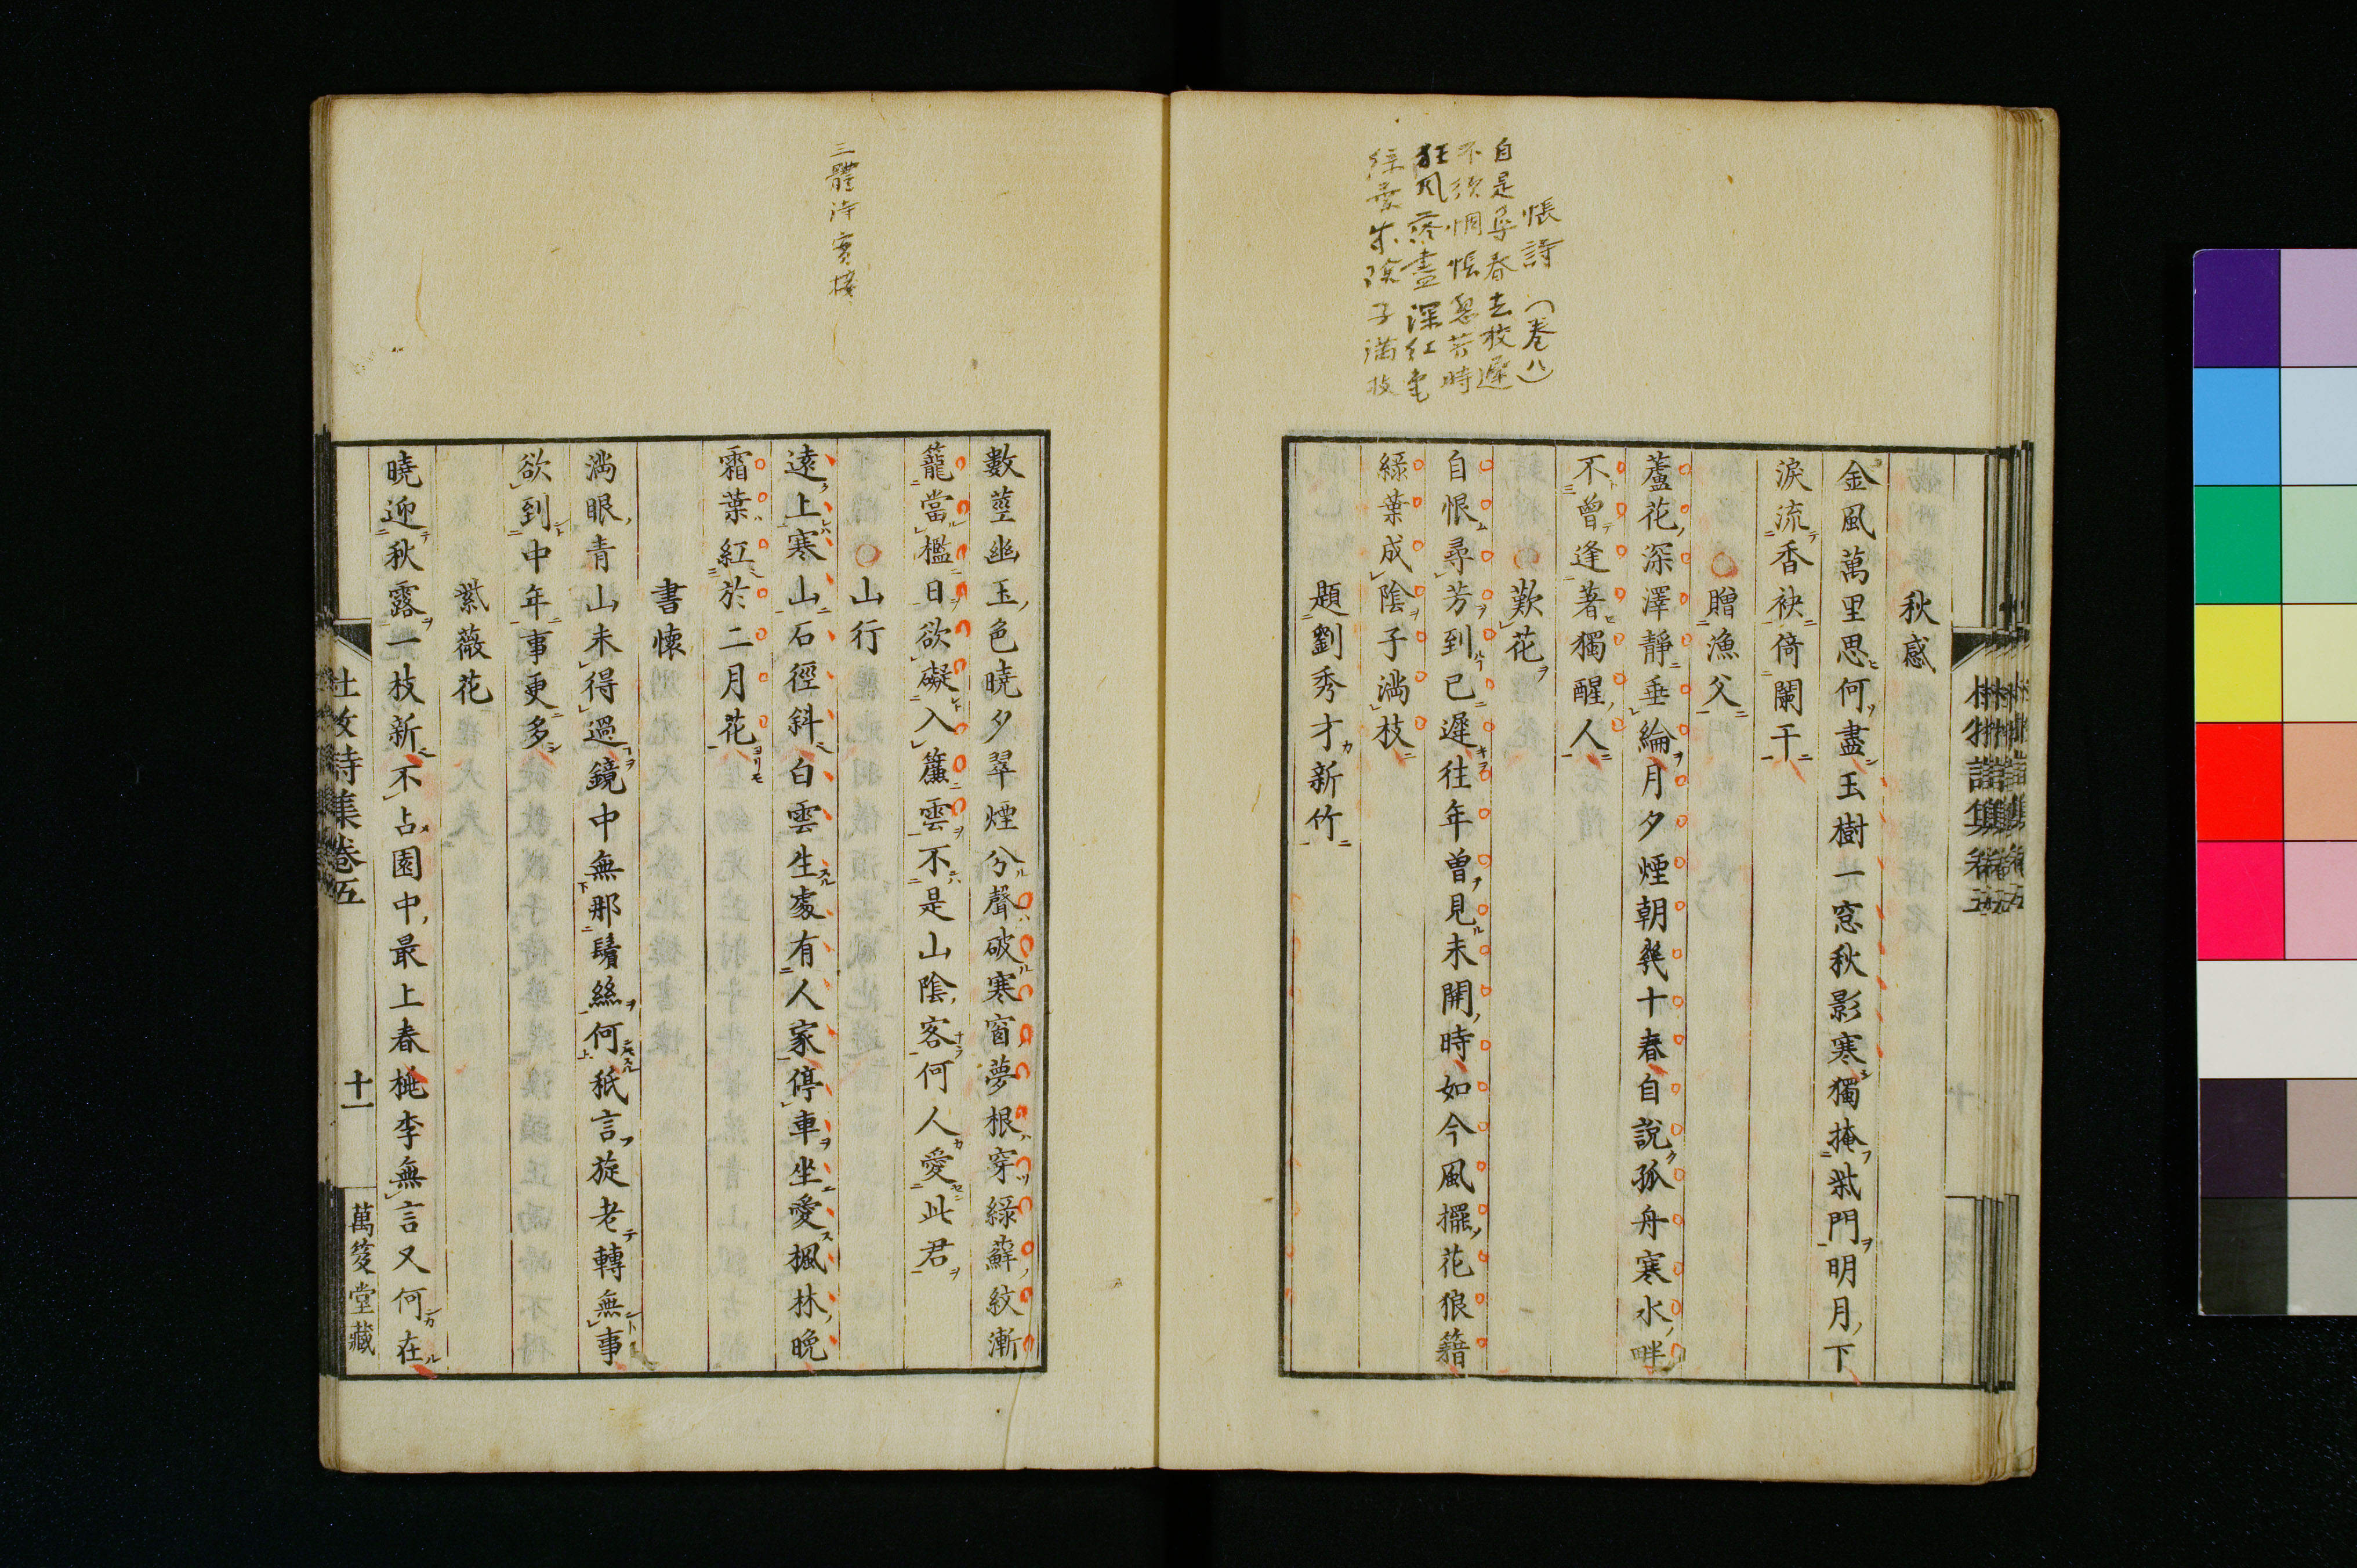 悵詩(卷八)
自是尋春去校遲
不須惆悵怨芳時
狂風落盡深紅色
綠葉成陰子滿枝
秋感
金風萬里思何盡玉樹一窓秋影寒獨掩柴門明月下
淚流香袂倚闌干
贈漁父
蘆花深澤靜垂綸月夕煙朝幾十春自說孤舟寒水畔
不曾逢著獨醒人
歎花
自恨尋芳到已遲往年曾見未開時如今風擺花狼籍
綠葉成陰子滿枝
題劉秀才新竹
三體詩
數莖幽玉色曉夕翠煙分聲破寒窗夢根穿綠蘚紋漸
籠當檻日欲礙入簾雲不是山陰客何人愛此君
山行
遠上寒山石徑斜白雲生處有人家停車坐愛楓林晚
霜葉紅於二月花
書懷
滿眼青山未得過鏡中無那鬢絲何秖言旋老轉無事
欲到中年事更多
紫薇花
曉迎秋露一枝新不占園中最上春桃李無言又何在
杜牧詩集卷五
十一
萬笈堂藏